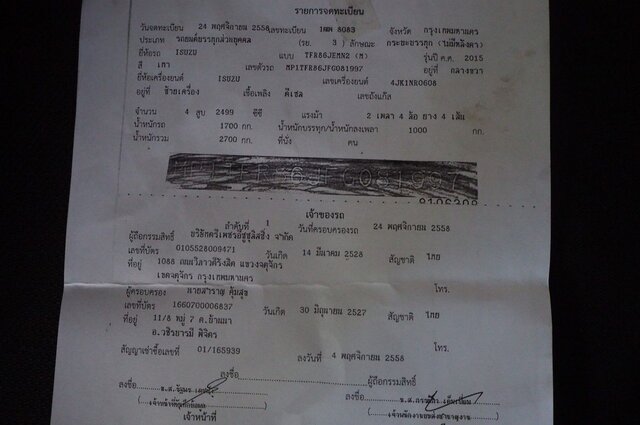 รายการจดทะเบียน
วันจดทะเบียน 24 พฤศจิกายน 2558 เลขทะเบียน 1ฒฒ 8083 จังหวัด กรุงเทพมหานคร
ประเภท รถยนต์บรรทุกส่วนบุคคล (รย. 3 ) ลักษณะ กระบะบรรทุก (ไม่มีหลังคา)
ยี่ห้อรถ ISUZU แบบ TFR86JEMN2 (M) รุ่นปี ค.ศ. 2015
สี เทา เลขตัวรถ MP1TFR86JFG081997 อยู่ที่ กลางขวา
ยี่ห้อเครื่องยนต์ ISUZU เลขเครื่องยนต์ 4JK1NR0608
อยู่ที่ ซ้ายเครื่อง เชื้อเพลิง ดีเซล เลขถังแก๊ส
จำนวน 4 สูบ 2499 ซีซี แรงม้า 2 เพลา 4 ล้อ ยาง 4 เส้น
น้ำหนักรถ 1700 กก. น้ำหนักบรรทุก/น้ำหนักลงเพลา 1000 กก.
น้ำหนักรวม 2700 กก. ที่นั่ง คน
เจ้าของรถ
ลำดับที่ 1 วันที่ครอบครองรถ 24 พฤศจิกายน 2558
ผู้ถือกรรมสิทธิ์ บริษัทตรีเพชรอีซูซุลิสซิ่ง จำกัด
เลขที่บัตร 0105528009471 วันเกิด 14 มีนาคม 2528 สัญชาติ ไทย
ที่อยู่ 1088 ถนนวิภาวดีรังสิต แขวงจตุจักร
เขตจตุจักร กรุงเทพมหานคร โทร.
ผู้ครอบครอง นายสำราญ คุ้มสุข
เลขที่บัตร 1660700006837 วันเกิด 30 มิถุนายน 2527 สัญชาติ ไทย
ที่อยู่ 11/8 หมู่ 7 ต.ย้านมา
อ.วชิรบารมี พิจิตร โทร.
สัญญาเช่าซื้อเลขที่ 01/165939 ลงวันที่ 4 พฤศจิกายน 2558
ลงชื่อ ผู้ถือกรรมสิทธิ์
ลงชื่อ ลงชื่อ
เจ้าหน้าที่